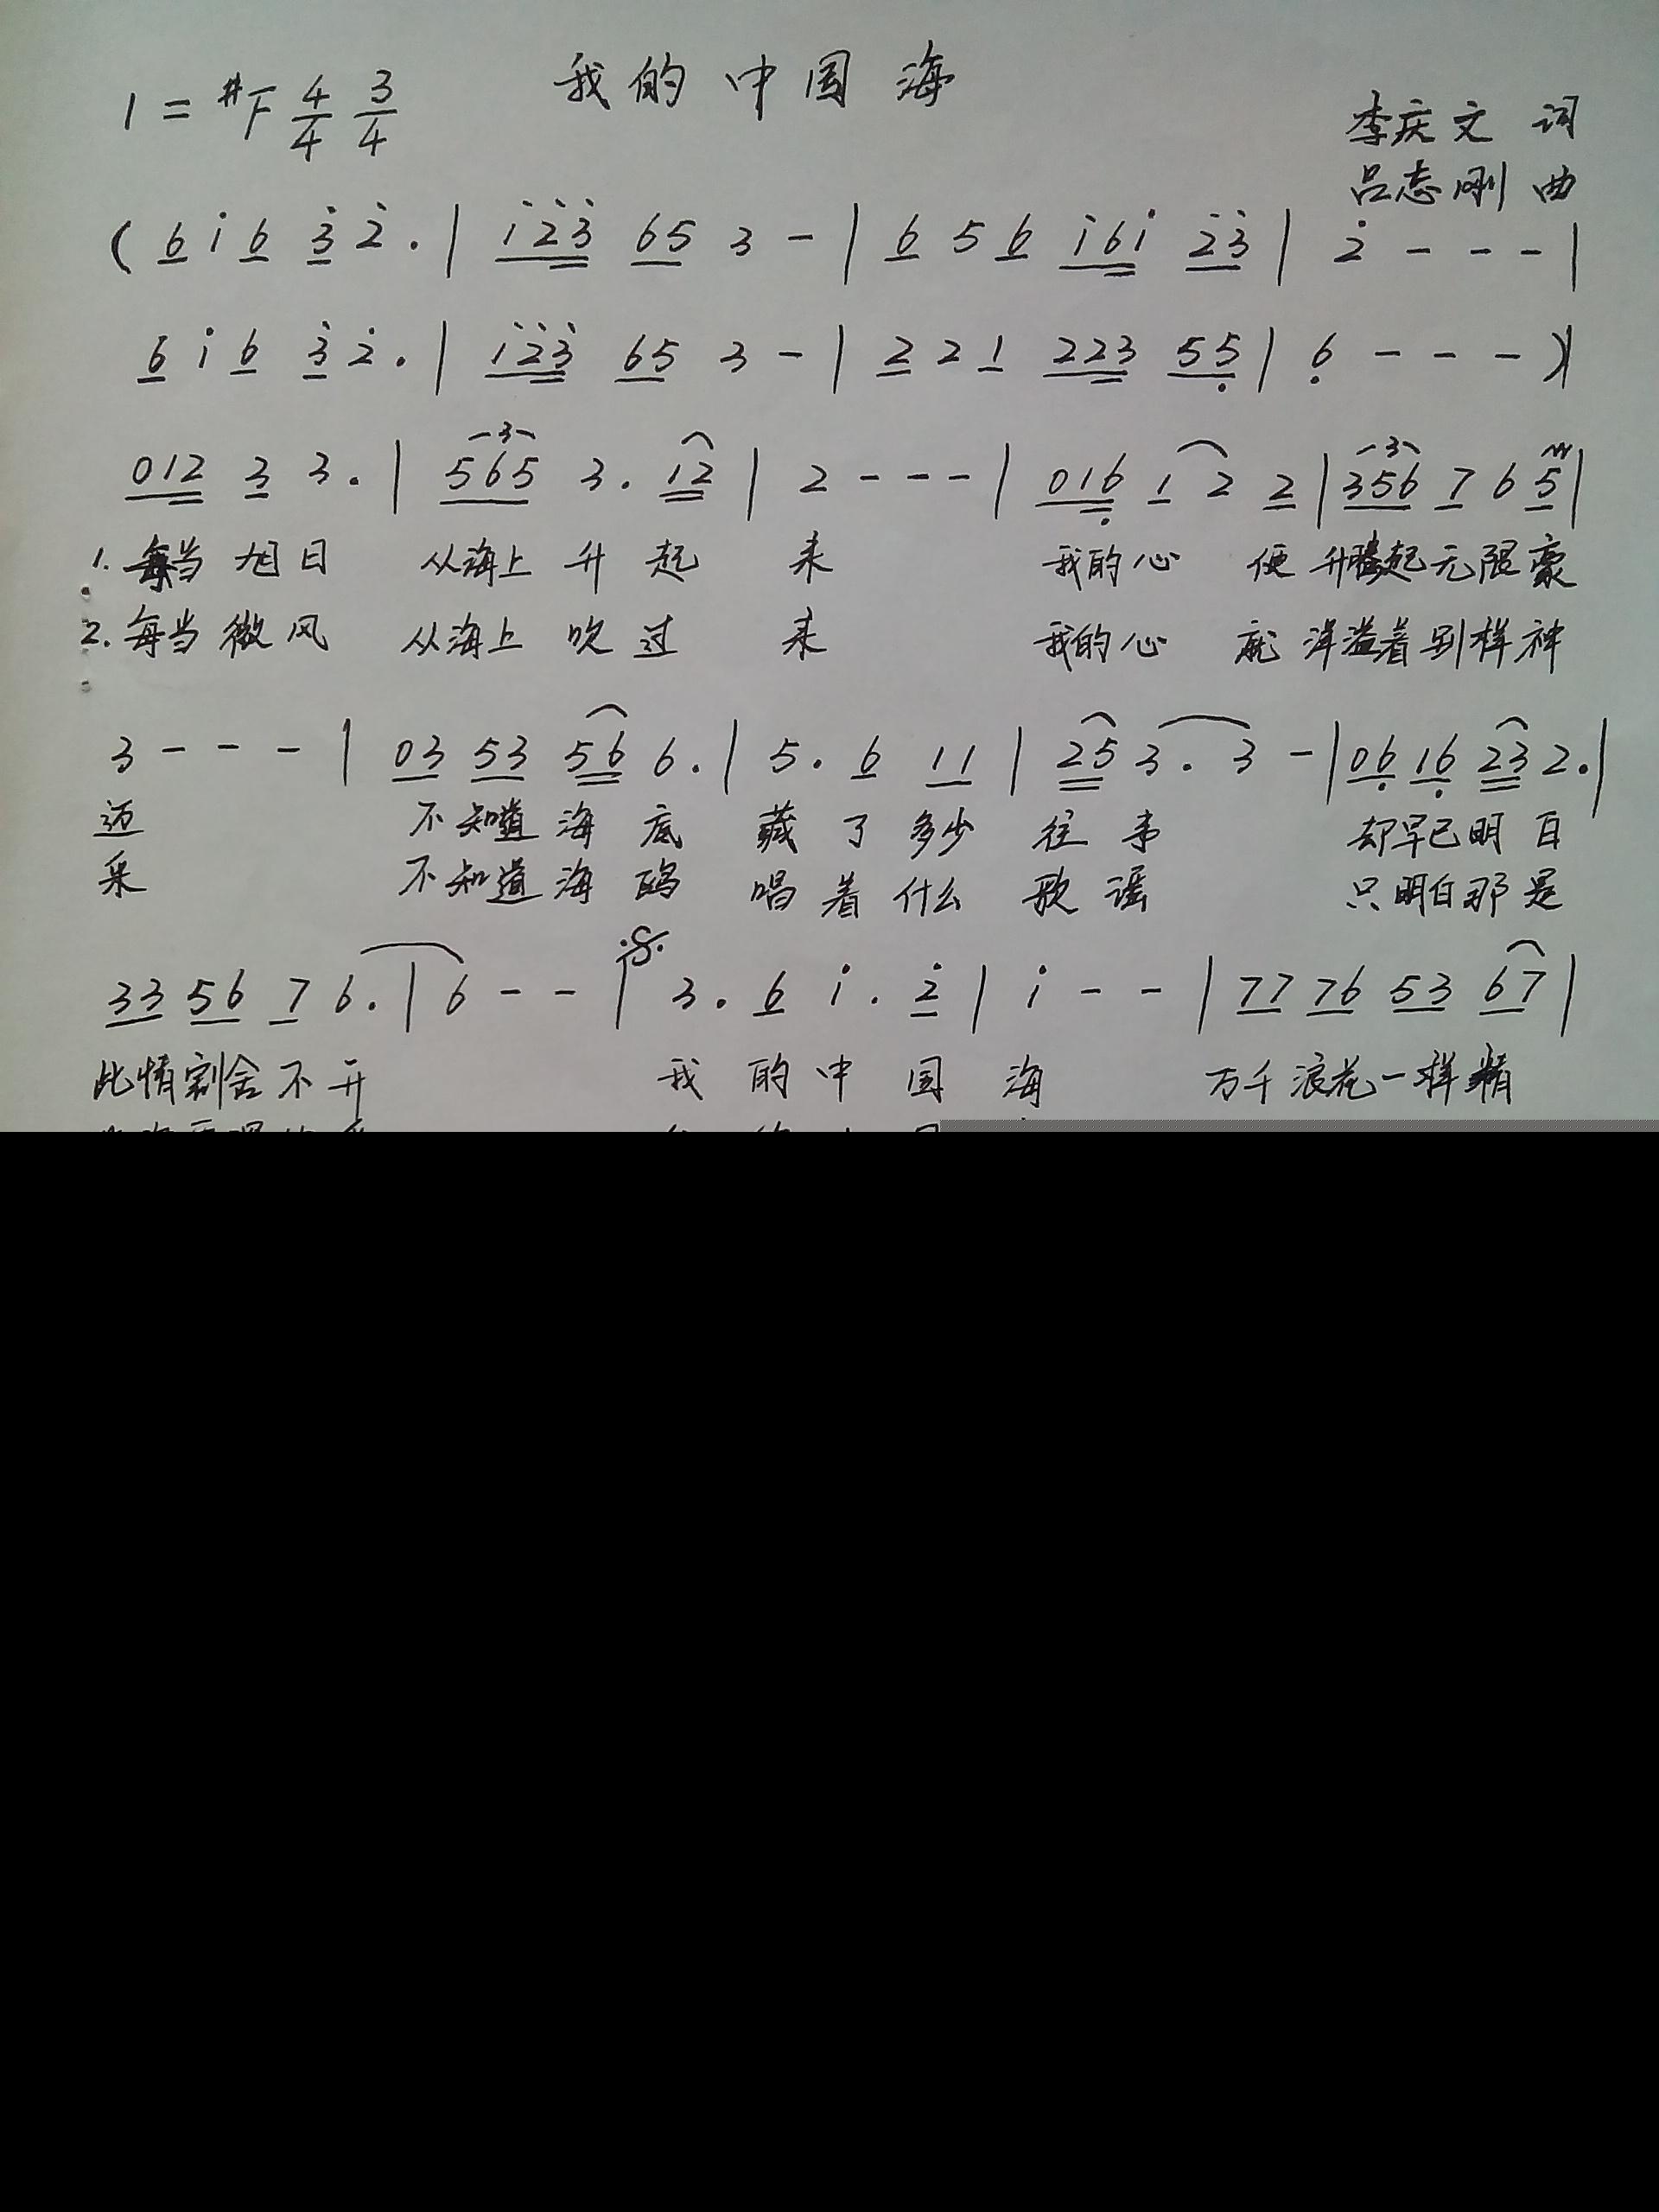 我的中国海
1=#F 4/4 3/4
李庆文 词
吕志刚 曲
( 6 i 6 3̇ 2̇ . | i 2̇ 3̇ 6 5 3 - | 6 5 6 i 6 i 2̇ 3̇ | 2̇ - - - |
6 i 6 3̇ 2̇ . | i 2̇ 3̇ 6 5 3 - | 2 2 1 2 2 3 5 5̣ | 6̣ - - - ) |
0 1 2 3 3 . | 5 6 5 3 . 1 2 | 2 - - - | 0 1 6̣ 1 2 2 | 3 5 6 7 6 5 |
1. 每当旭日 从海上升起来 我的心便升腾起无限豪
2. 每当微风 从海上吹过来 我的心就洋溢着别样神
3 - - - | 0 3 5 3 5 6 6 . | 5 . 6 1 1 | 2 5 3 . 3 - | 0 6̣ 1 6̣ 2 3 2 . |
迈 不知道海底藏了多少往事 却早已明白
采 不知道海鸥唱着什么歌谣 只明白那是
3 3 5 6 7 6 . | 6 - - | 3 . 6 i . 2̇ | i - - | 7 7 7 6 5 3 6 7 |
此情割舍不开 我的中国海 万千浪花一样精